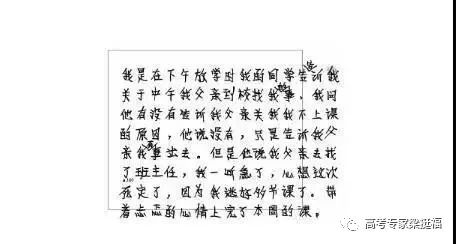 我是在下午放学时我的同学告诉我
关于中午我父亲到校找我事,我问
他有没有告诉我父亲关我我不上课
的原因,他说没有,只是告诉我父
亲我出去。但是他说我父亲去找
了班主任,我一听急了,心想这次
死定了,因为我逃好多节课了。带
着忐忑的心情上完了本周的课。
高考专家梁挺福